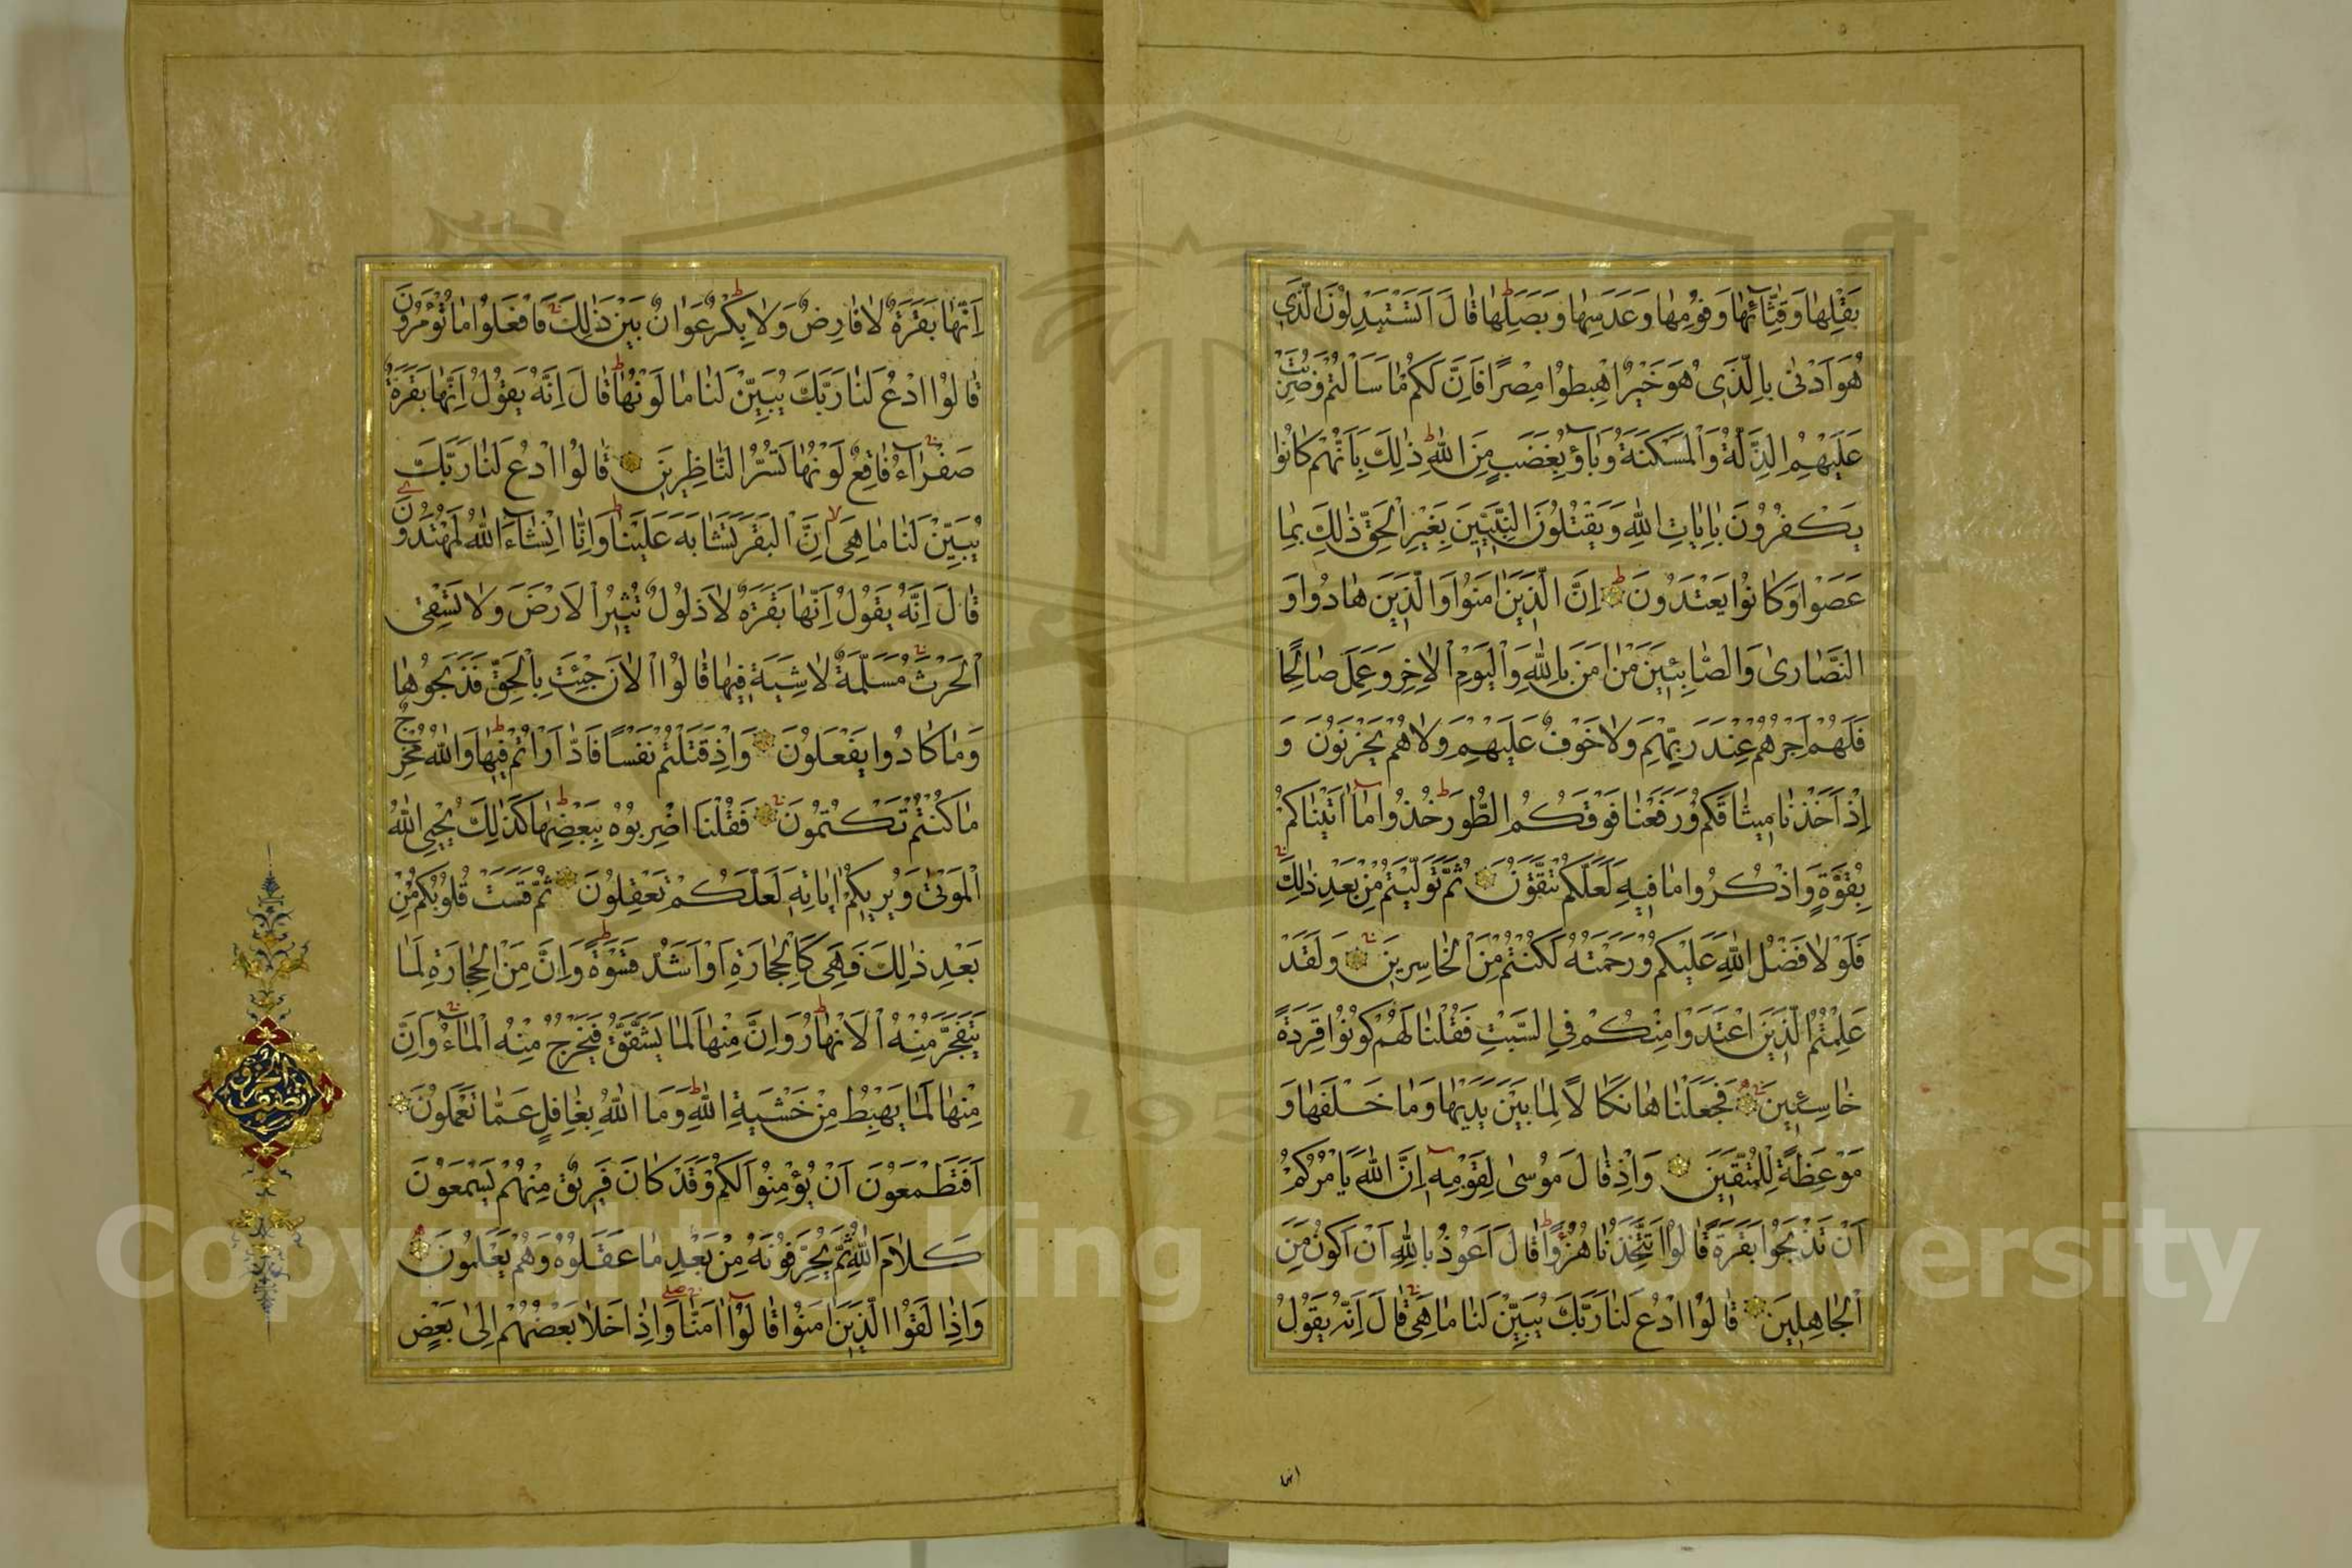 بَقْلِهَا وَقِثَّائِهَا وَفُومِهَا وَعَدَسِهَا وَبَصَلِهَا قَالَ اَتَسْتَبْدِلُونَ الَّذِي
هُوَ اَدْنٰى بِالَّذِي هُوَ خَيْرٌ اِهْبِطُوا مِصْرًا فَاِنَّ لَكُمْ مَا سَاَلْتُمْ وَضُرِبَتْ
عَلَيْهِمُ الذِّلَّةُ وَالْمَسْكَنَةُ وَبَاؤُ بِغَضَبٍ مِنَ اللهِ ذٰلِكَ بِاَنَّهُمْ كَانُوا
يَكْفُرُونَ بِاٰيَاتِ اللهِ وَيَقْتُلُونَ النَّبِيِّينَ بِغَيْرِ الْحَقِّ ذٰلِكَ بِمَا
عَصَوْا وَكَانُوا يَعْتَدُونَ اِنَّ الَّذِينَ اٰمَنُوا وَالَّذِينَ هَادُوا وَ
النَّصَارٰى وَالصَّابِئِينَ مَنْ اٰمَنَ بِاللهِ وَالْيَوْمِ الْاٰخِرِ وَعَمِلَ صَالِحًا
فَلَهُمْ اَجْرُهُمْ عِنْدَ رَبِّهِمْ وَلَا خَوْفٌ عَلَيْهِمْ وَلَا هُمْ يَحْزَنُونَ وَ
اِذْ اَخَذْنَا مِيثَاقَكُمْ وَرَفَعْنَا فَوْقَكُمُ الطُّورَ خُذُوا مَا اٰتَيْنَاكُمْ
بِقُوَّةٍ وَاذْكُرُوا مَا فِيهِ لَعَلَّكُمْ تَتَّقُونَ ثُمَّ تَوَلَّيْتُمْ مِنْ بَعْدِ ذٰلِكَ
فَلَوْلَا فَضْلُ اللهِ عَلَيْكُمْ وَرَحْمَتُهُ لَكُنْتُمْ مِنَ الْخَاسِرِينَ وَلَقَدْ
عَلِمْتُمُ الَّذِينَ اعْتَدَوْا مِنْكُمْ فِي السَّبْتِ فَقُلْنَا لَهُمْ كُونُوا قِرَدَةً
خَاسِئِينَ فَجَعَلْنَاهَا نَكَالًا لِمَا بَيْنَ يَدَيْهَا وَمَا خَلْفَهَا وَ
مَوْعِظَةً لِلْمُتَّقِينَ وَاِذْ قَالَ مُوسٰى لِقَوْمِهِ اِنَّ اللهَ يَاْمُرُكُمْ
اَنْ تَذْبَحُوا بَقَرَةً قَالُوا اَتَتَّخِذُنَا هُزُوًا قَالَ اَعُوذُ بِاللهِ اَنْ اَكُونَ مِنَ
الْجَاهِلِينَ قَالُوا ادْعُ لَنَا رَبَّكَ يُبَيِّنْ لَنَا مَا هِيَ قَالَ اِنَّهُ يَقُولُ
انها
اِنَّهَا بَقَرَةٌ لَا فَارِضٌ وَلَا بِكْرٌ عَوَانٌ بَيْنَ ذٰلِكَ فَافْعَلُوا مَا تُؤْمَرُونَ
قَالُوا ادْعُ لَنَا رَبَّكَ يُبَيِّنْ لَنَا مَا لَوْنُهَا قَالَ اِنَّهُ يَقُولُ اِنَّهَا بَقَرَةٌ
صَفْرَاءُ فَاقِعٌ لَوْنُهَا تَسُرُّ النَّاظِرِينَ قَالُوا ادْعُ لَنَا رَبَّكَ
يُبَيِّنْ لَنَا مَا هِيَ اِنَّ الْبَقَرَ تَشَابَهَ عَلَيْنَا وَاِنَّا اِنْشَاءَ اللهُ لَمُهْتَدُونَ
قَالَ اِنَّهُ يَقُولُ اِنَّهَا بَقَرَةٌ لَا ذَلُولٌ تُثِيرُ الْاَرْضَ وَلَا تَسْقِي
الْحَرْثَ مُسَلَّمَةٌ لَا شِيَةَ فِيهَا قَالُوا الْاٰنَ جِئْتَ بِالْحَقِّ فَذَبَحُوهَا
وَمَا كَادُوا يَفْعَلُونَ وَاِذْ قَتَلْتُمْ نَفْسًا فَادّٰارَاْتُمْ فِيهَا وَاللهُ مُخْرِجٌ
مَا كُنْتُمْ تَكْتُمُونَ فَقُلْنَا اضْرِبُوهُ بِبَعْضِهَا كَذٰلِكَ يُحْيِي اللهُ
الْمَوْتٰى وَيُرِيكُمْ اٰيَاتِهِ لَعَلَّكُمْ تَعْقِلُونَ ثُمَّ قَسَتْ قُلُوبُكُمْ مِنْ
بَعْدِ ذٰلِكَ فَهِيَ كَالْحِجَارَةِ اَوْ اَشَدُّ قَسْوَةً وَاِنَّ مِنَ الْحِجَارَةِ لَمَا
يَتَفَجَّرُ مِنْهُ الْاَنْهَارُ وَاِنَّ مِنْهَا لَمَا يَشَّقَّقُ فَيَخْرُجُ مِنْهُ الْمَاءُ وَاِنَّ
مِنْهَا لَمَا يَهْبِطُ مِنْ خَشْيَةِ اللهِ وَمَا اللهُ بِغَافِلٍ عَمَّا تَعْمَلُونَ
اَفَتَطْمَعُونَ اَنْ يُؤْمِنُوا لَكُمْ وَقَدْ كَانَ فَرِيقٌ مِنْهُمْ يَسْمَعُونَ
كَلَامَ اللهِ ثُمَّ يُحَرِّفُونَهُ مِنْ بَعْدِ مَا عَقَلُوهُ وَهُمْ يَعْلَمُونَ
وَاِذَا لَقُوا الَّذِينَ اٰمَنُوا قَالُوا اٰمَنَّا وَاِذَا خَلَا بَعْضُهُمْ اِلٰى بَعْضٍ
Copyright © King Saud University
195